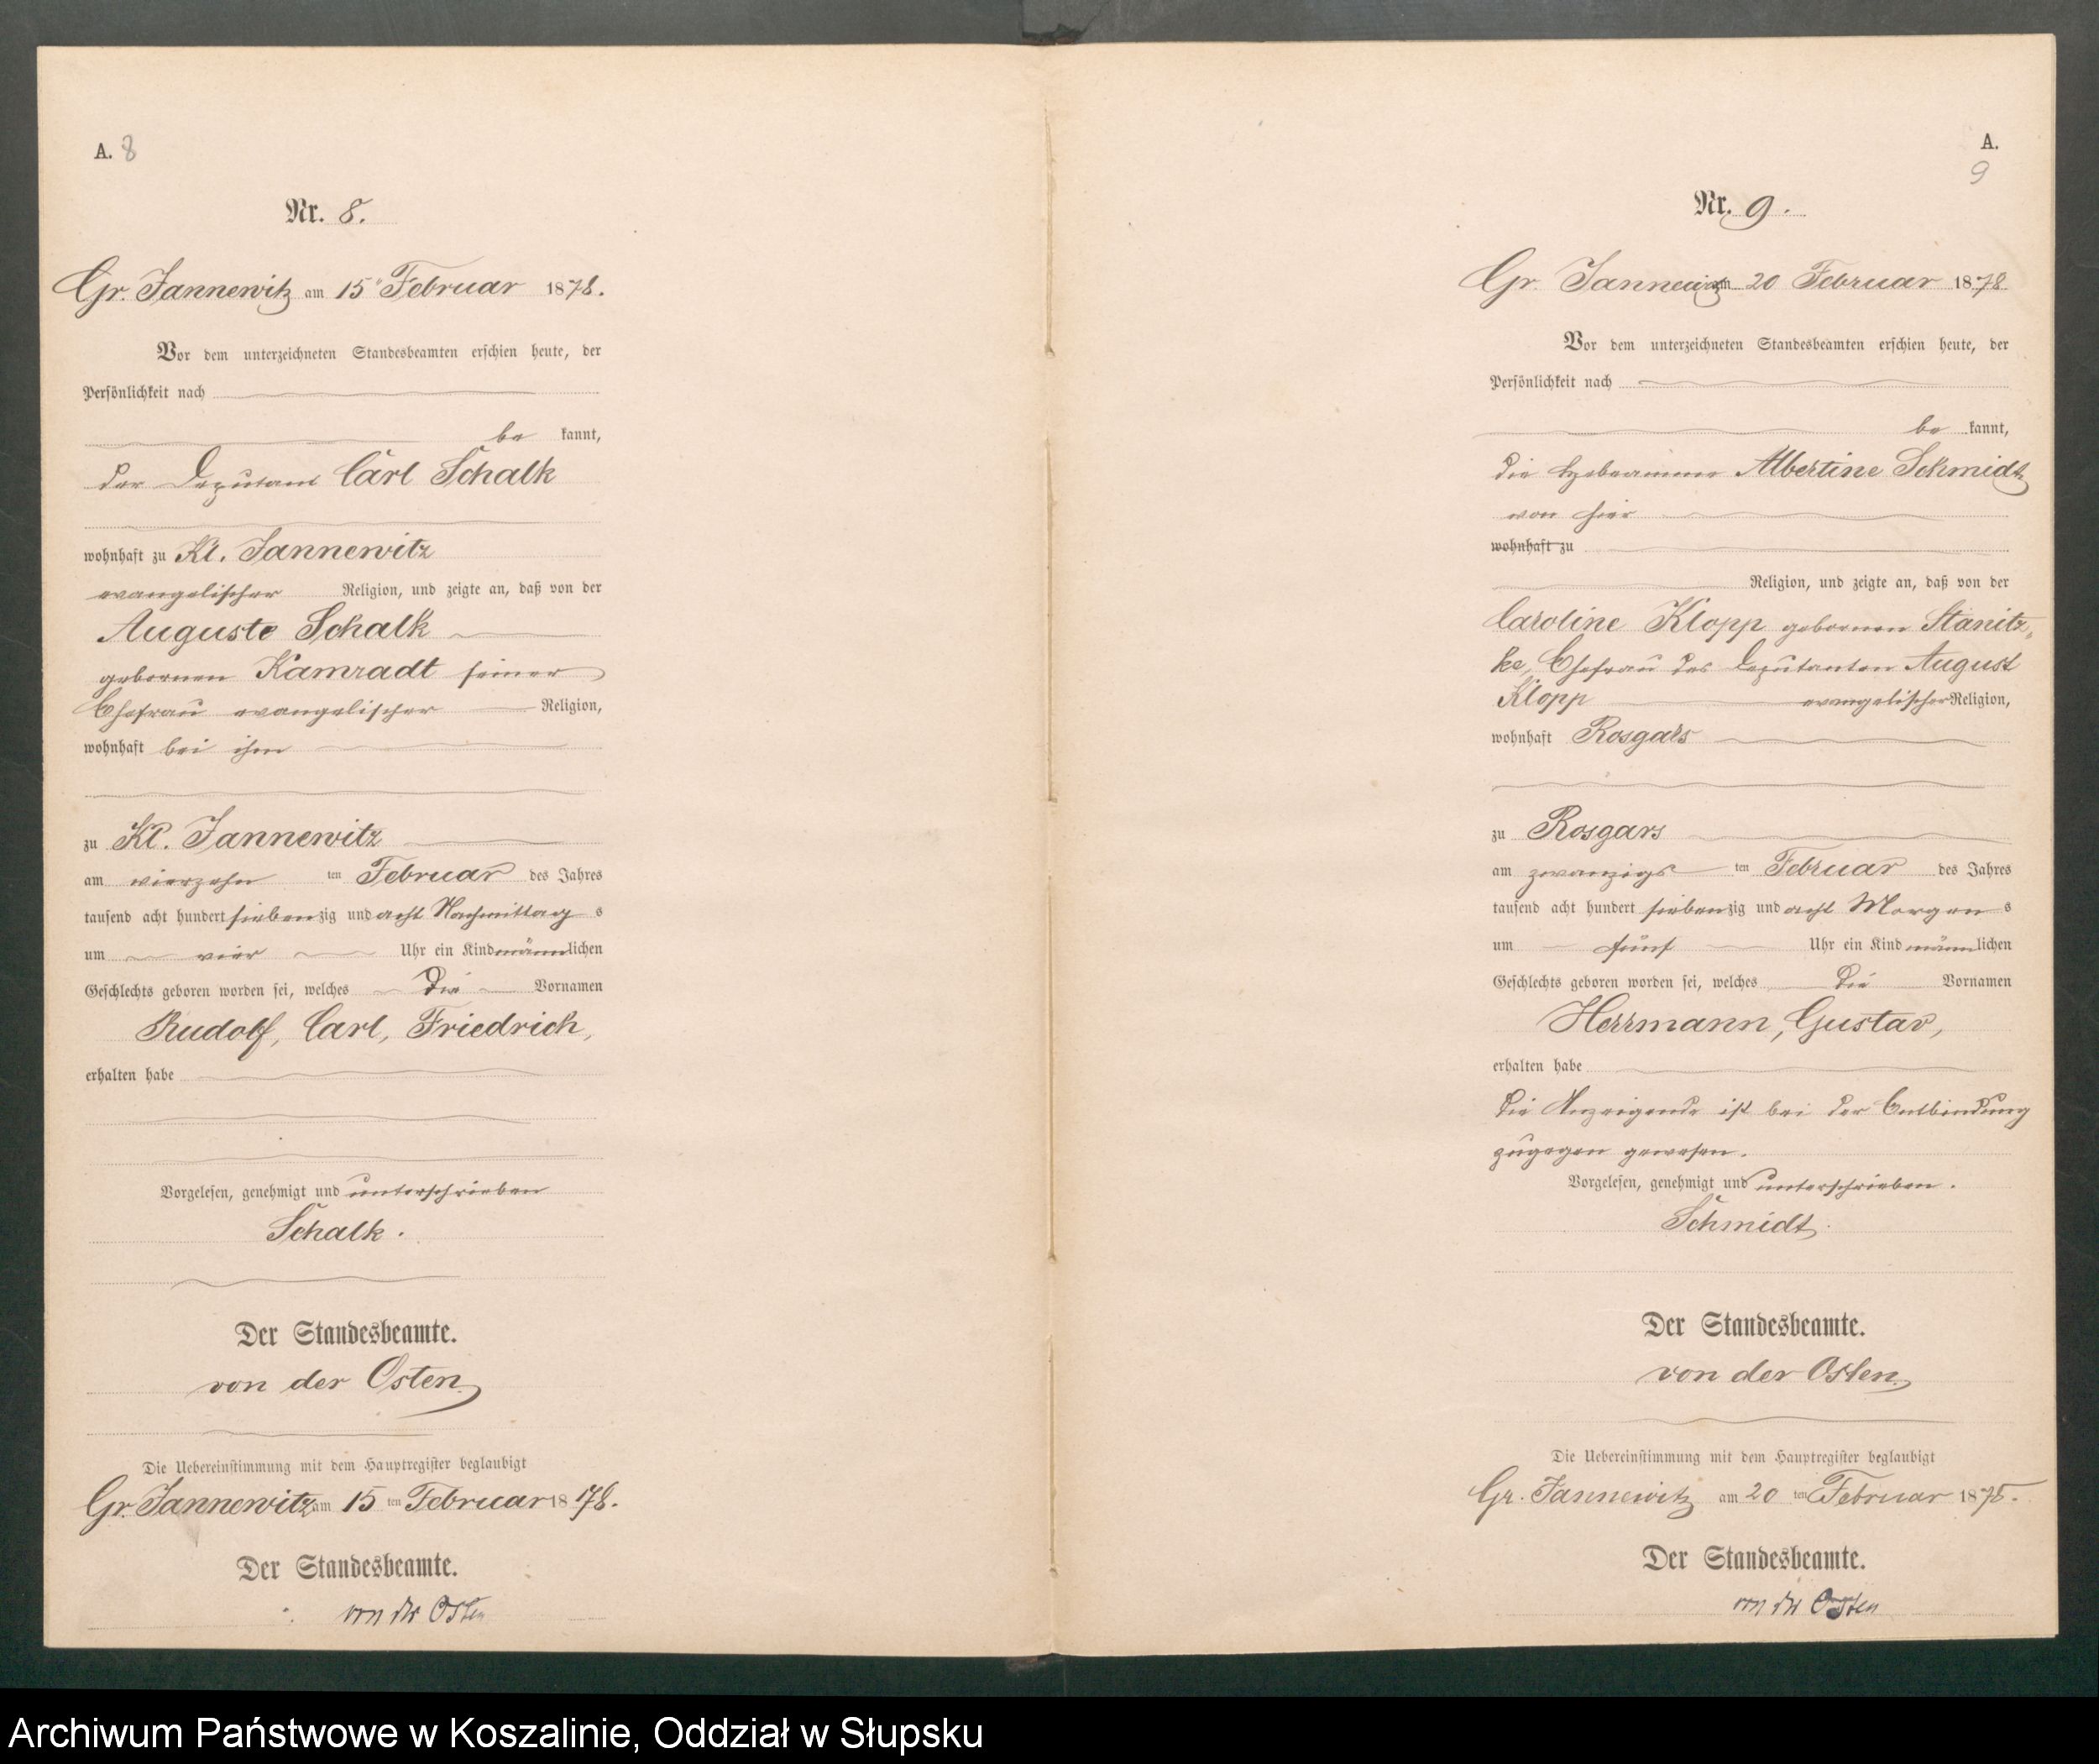 A. 8
Nr. 8.
Gr. Jannewitz am 15 Februar 1878.
Vor dem unterzeichneten Standesbeamten erschien heute, der
Persönlichkeit nach
be kannt,
der Deputant Carl Schalk
wohnhaft zu Kl. Jannewitz
evangelischer Religion, und zeigte an, daß von der
Auguste Schalk
gebornen Kamradt seiner
Ehefrau evangelischer Religion,
wohnhaft bei ihm
zu Kl. Jannewitz
am vierzehn ten Februar des Jahres
tausend acht hundert siebenzig und acht Nachmittag s
um vier Uhr ein Kind männlichen
Geschlechts geboren worden sei, welches die Vornamen
Rudolf, Carl, Friedrich,
erhalten habe
Vorgelesen, genehmigt und unterschrieben
Schalk.
Der Standesbeamte.
von der Osten
Die Uebereinstimmung mit dem Hauptregister beglaubigt
Gr. Jannewitz am 15 ten Februar 1878.
Der Standesbeamte.
von der Osten
A.
9
Nr. 9.
Gr. Jannewitz am 20 Februar 1878
Vor dem unterzeichneten Standesbeamten erschien heute, der
Persönlichkeit nach
be kannt,
die Hebeamme Albertine Schmidt
von hier
wohnhaft zu
Religion, und zeigte an, daß von der
Caroline Klopp gebornen Stanitz-
ke, Ehefrau des Deputanten August
Klopp evangelischer Religion,
wohnhaft Rosgars
zu Rosgars
am zwanzigs ten Februar des Jahres
tausend acht hundert siebenzig und acht Morgen s
um fünf Uhr ein Kind männlichen
Geschlechts geboren worden sei, welches die Vornamen
Herrmann, Gustav,
erhalten habe
Die Anzeigende ist bei der Entbindung
zugegen gewesen.
Vorgelesen, genehmigt und unterschrieben.
Schmidt
Der Standesbeamte.
von der Osten
Die Uebereinstimmung mit dem Hauptregister beglaubigt
Gr. Jannewitz am 20 ten Februar 1878.
Der Standesbeamte.
von der Osten
Archiwum Państwowe w Koszalinie, Oddział w Słupsku